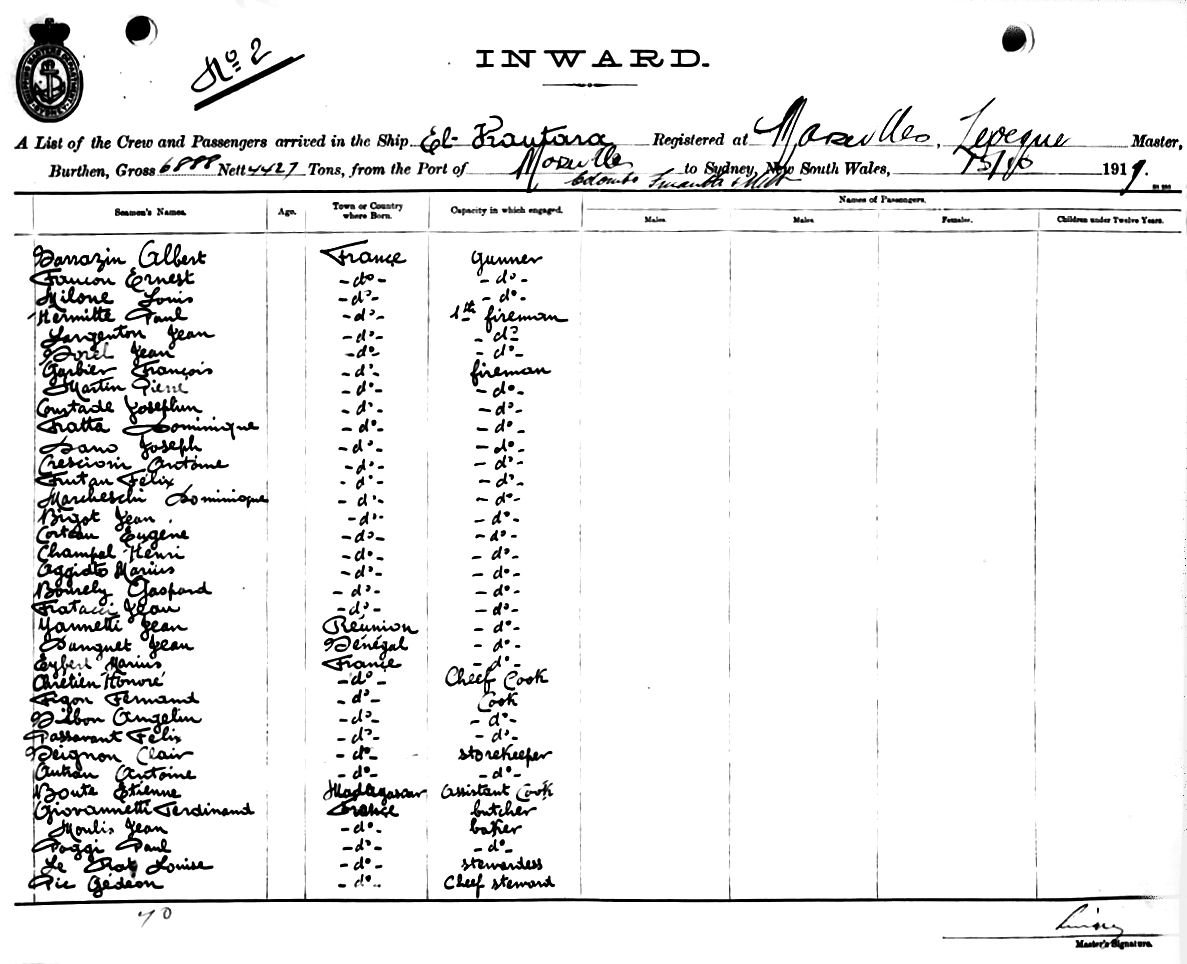 No 2
INWARD.
A List of the Crew and Passengers arrived in the Ship El-Kantara Registered at Marseilles, Leveque Master,
Burthen, Gross 6888 Nett 4427 Tons, from the Port of Marseilles to Sydney, New South Wales, 1919.
Colombo Fremantle & Melb
Seamen's Names. Age. Town or Country where Born. Capacity in which engaged. Names of Passengers.
Males. Males. Females. Children under Twelve Years.
Sarrazin Albert France gunner
Francon Ernest -do- -do-
Milone Louis -do- -do-
Hermitte Paul -do- 1th fireman
Largenton Jean -do- -do
Sorel Jean -do -do-
Garbier François -do- fireman
Martin Pierre -do- -do-
Coustade Josephin -do- -do-
Fratta Dominique -do- -do-
Dano Joseph -do- -do-
Crescioni Antoine -do- -do-
Frutau Félix -do- -do-
Marcheschi Dominique -do- -do-
Bigot Jean -do- -do-
Corteau Eugène -do- -do-
Champel Henri -do- -do-
Aggiato Marius -do- -do-
Bourely Gaspard -do- -do-
Fratacci Jean -do- -do-
Yannetti Jean Réunion -do-
Danguet Jean Sénégal -do-
Eybert Marius France -do-
Chrétien Honoré -do- Cheef Cook
Figon Fernand -do- Cook
Silbon Angelin -do- -do-
Passavant Félix -do- -do-
Seignon Clair -do- storekeeper
Autran Antoine -do- -do-
Boute Etienne Madagascar Assistant Cook
Giovannetti Ferdinand France butcher
Moulis Jean -do- baker
Poggi Paul -do- -do-
Le Rat Louise -do- stewardess
Pic Gédéon -do- Cheef steward
70
Master's Signature.